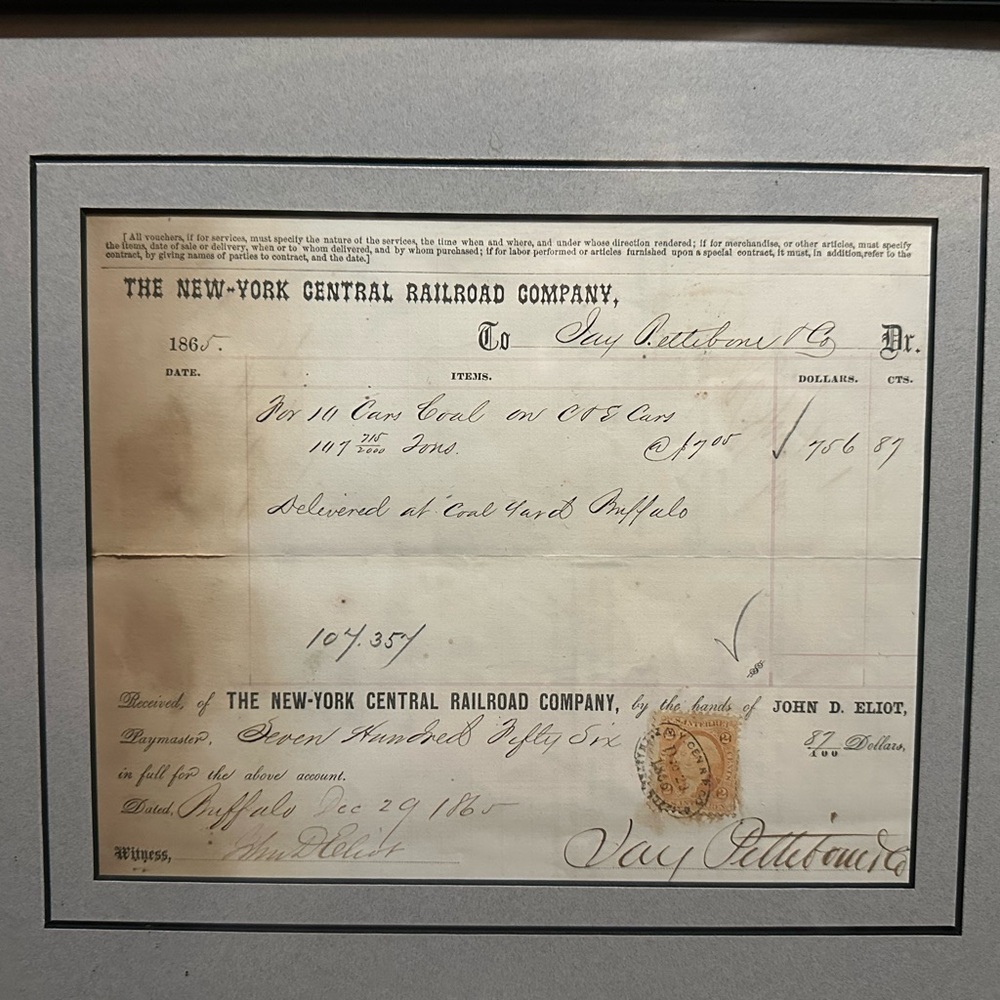 [ All vouchers, if for services, must specify the nature of the services, the time when and where, and under whose direction rendered; if for merchandise, or other articles, must specify
the items, date of sale or delivery, when or to whom delivered, and by whom purchased; if for labor performed or articles furnished upon a special contract, it must, in addition, refer to the
contract, by giving names of parties to contract, and the date.]
THE NEW-YORK CENTRAL RAILROAD COMPANY,
1865. To Jay Pettebone & Co Dr.
DATE. ITEMS. DOLLARS. CTS.
For 10 Cars Coal on C&E Cars
107 715/2000 Tons. @ $7.05 756 87
Delivered at Coal Yard Buffalo
107.357
Received, of THE NEW-YORK CENTRAL RAILROAD COMPANY, by the hands of JOHN D. ELIOT,
Paymaster, Seven Hundred Fifty Six 87/100 Dollars,
in full for the above account.
Dated, Buffalo Dec 29 1865
Witness, John D Eliot Jay Pettebone & Co